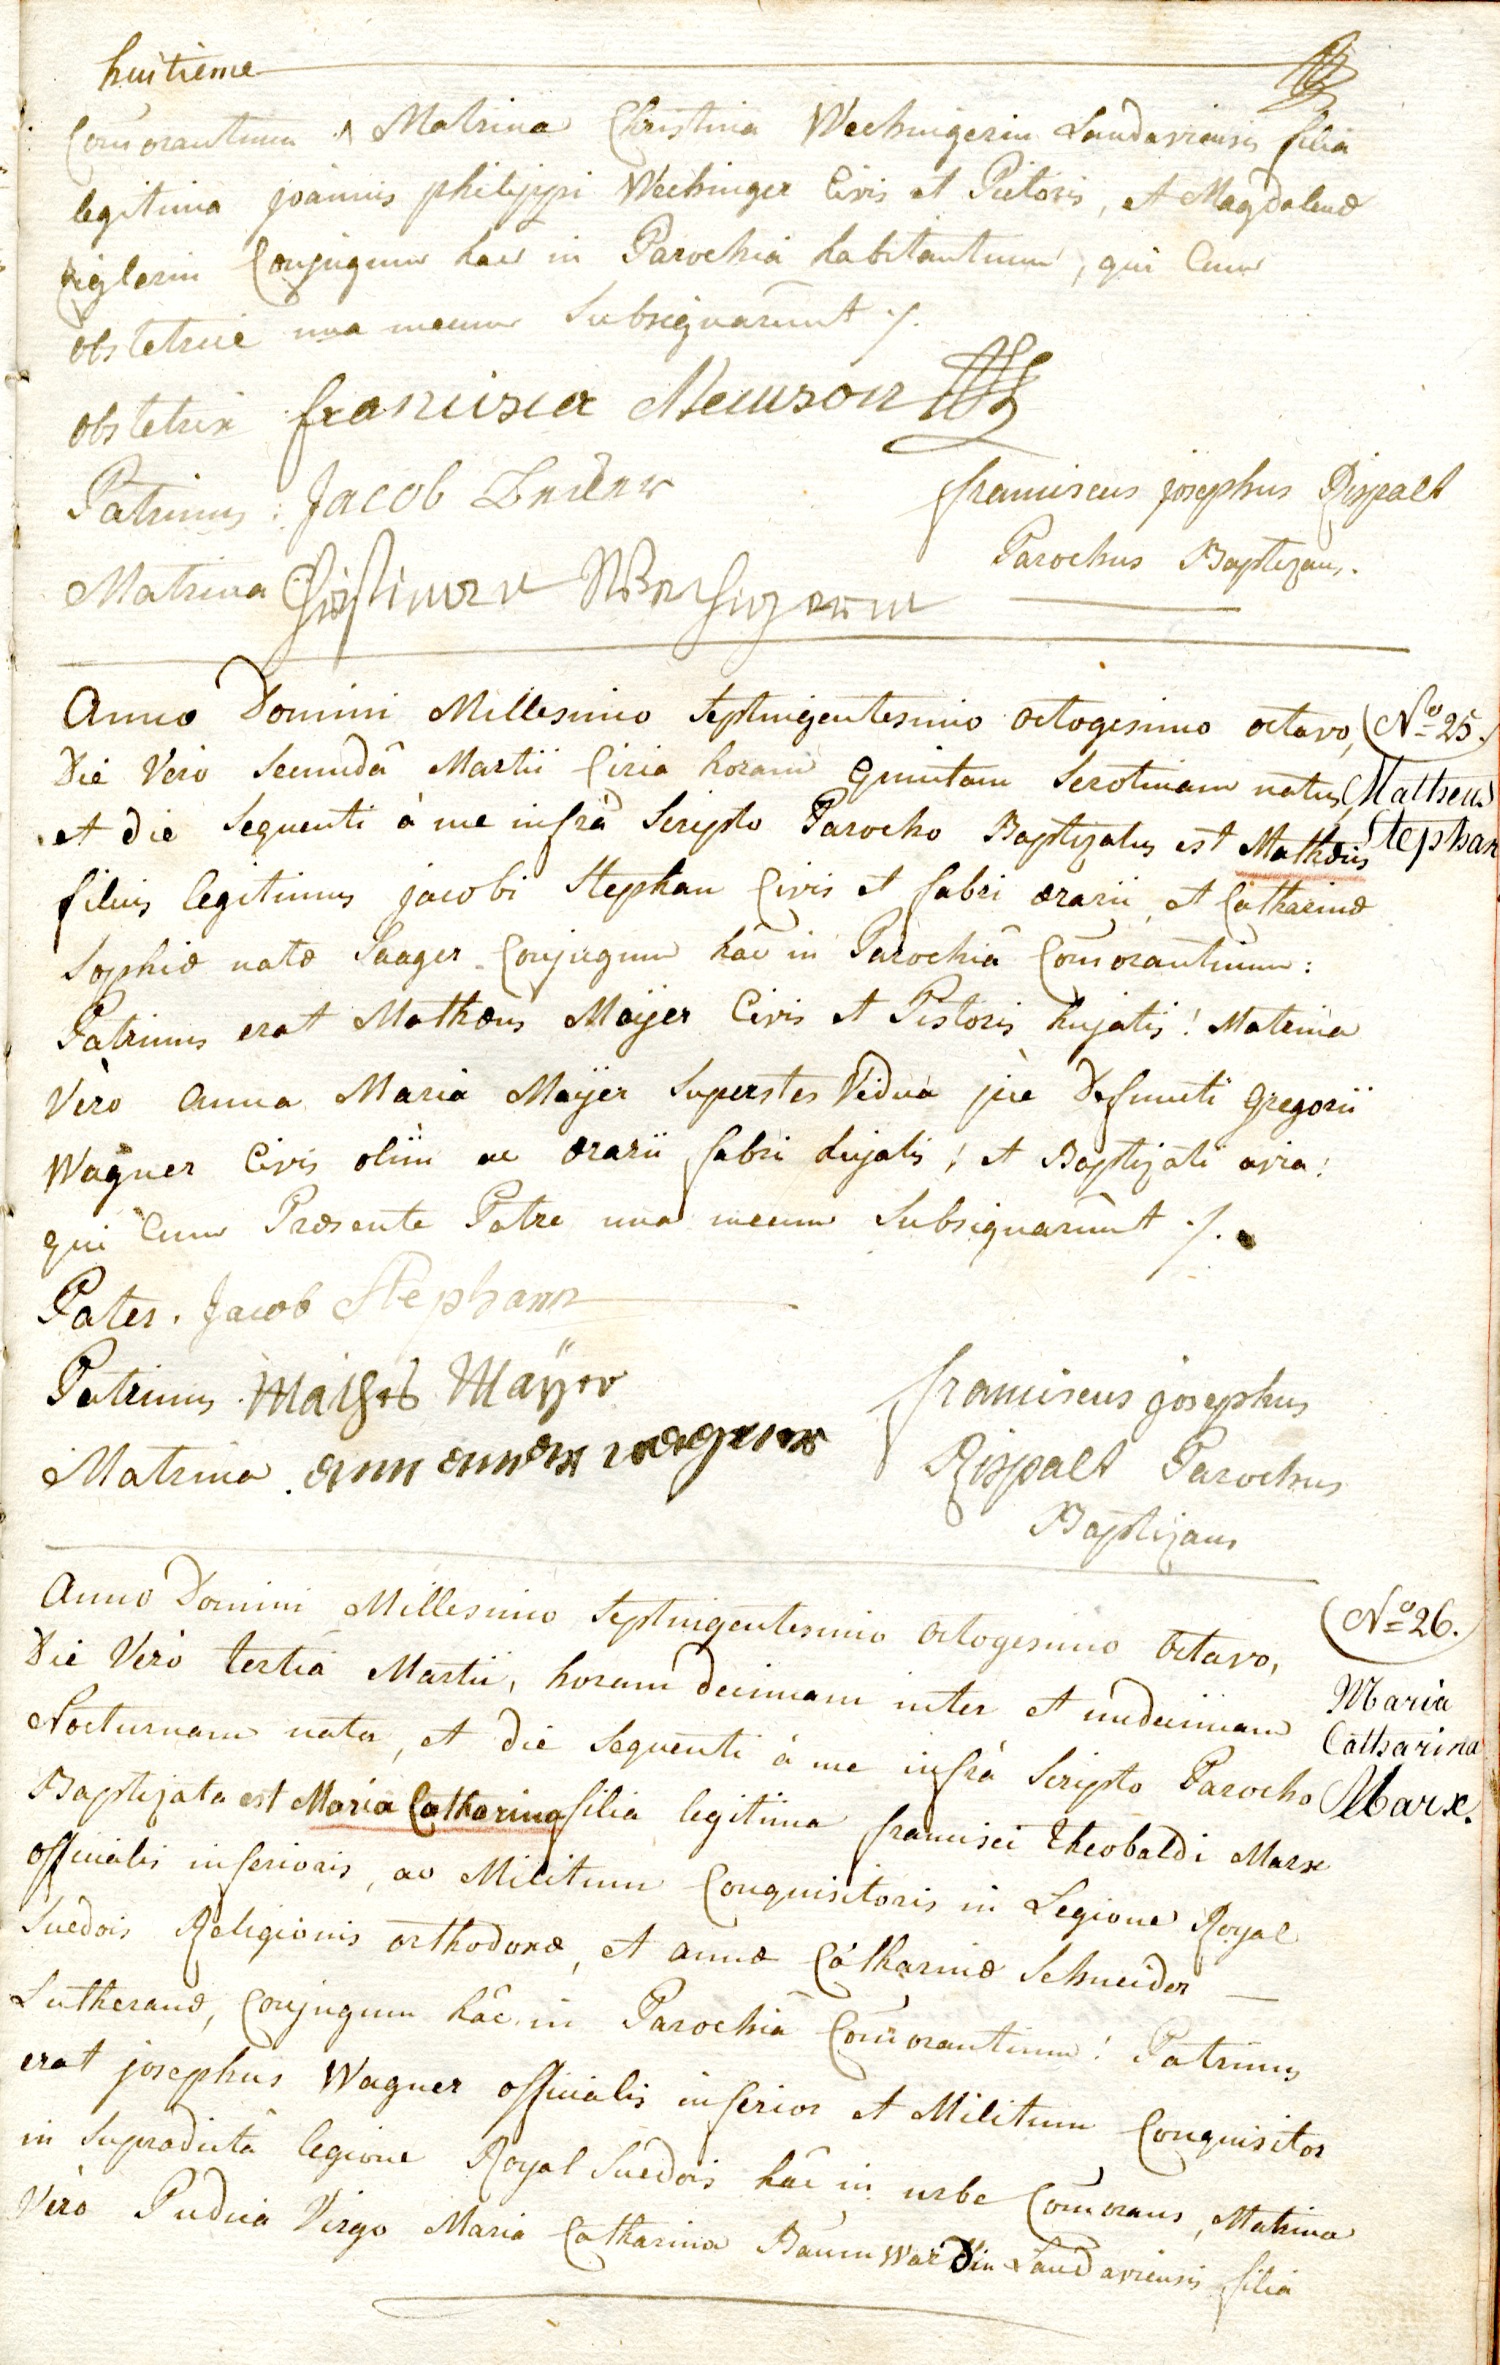 huitieme
Com̄orantium ; Matrina Christina Wechingerin Landaviensis filia
legitima joannis philippi Wechinger Civis et Pictoris, et Magdalenæ
Ziglerin Conjugum hac in Parochiâ habitantium, qui Cum
obstetrice una mecum Subsignarunt ./.
obstetrix francisca Neuuson
Patrinus : Jacob
franciscus josephus Rispalt
Parochus Baptizans.
Matrina Christina Wechingerin
Anno Domini Millesimo Septingentesimo octogesimo octavo,
Die Vero Secundâ Martii Circa horam quintam Serotinam natus,
et die Sequenti à me infrà Scripto Parocho Baptizatus est Mathæus
filius legitimus jacobi Stephan Civis et fabri ærarii, et Catharinæ
Sophiæ natæ Saager Conjugum hâc in Parochiâ Com̄orantium :
Patrinus erat Mathæus Maÿer Civis et Pistoris hujatis ! Matrina
Vèro Anna Maria Maÿer Superstes Vidua piè Defuncti Gregorii
Wagner Civis olim ac ærarii fabri hujatis ; et Baptizati avia !
qui Cum Præsente Patre una mecum Subsignarunt ./.
No 25.
Matheus
Stephan
Pater. Jacob Stephann
Patrinus. Mathes Maÿer
Matrina. wagner
franciscus josephus
Rispalt Parochus
Baptizans
Anno Domini Millesimo Septingentesimo octogesimo octavo,
Die Vero tertiâ Martii, horam decimam inter et undecimam
Nocturnam nata, et die Sequenti à me infrà Scripto Parocho
Baptizata est Maria Catharina filia legitima francisci Theobaldi Marx
officialis inferioris, ac Militum Conquisitoris in Legione Royal
Suedois Religionis orthodoxæ, et annæ Catharinæ Schneider
Lutheranæ, Conjugum hâc in Parochiâ Com̄orantium ! Patrinus
erat josephus Wagner officialis inferior et Militum Conquisitor
in Supradictâ legione Royal Suedois hâc in urbe Com̄orans, Matrina
Vèro Pudica Virgo Maria Catharina BaumWardin Landaviensis filia
No 26.
Maria
Catharina
Marx.